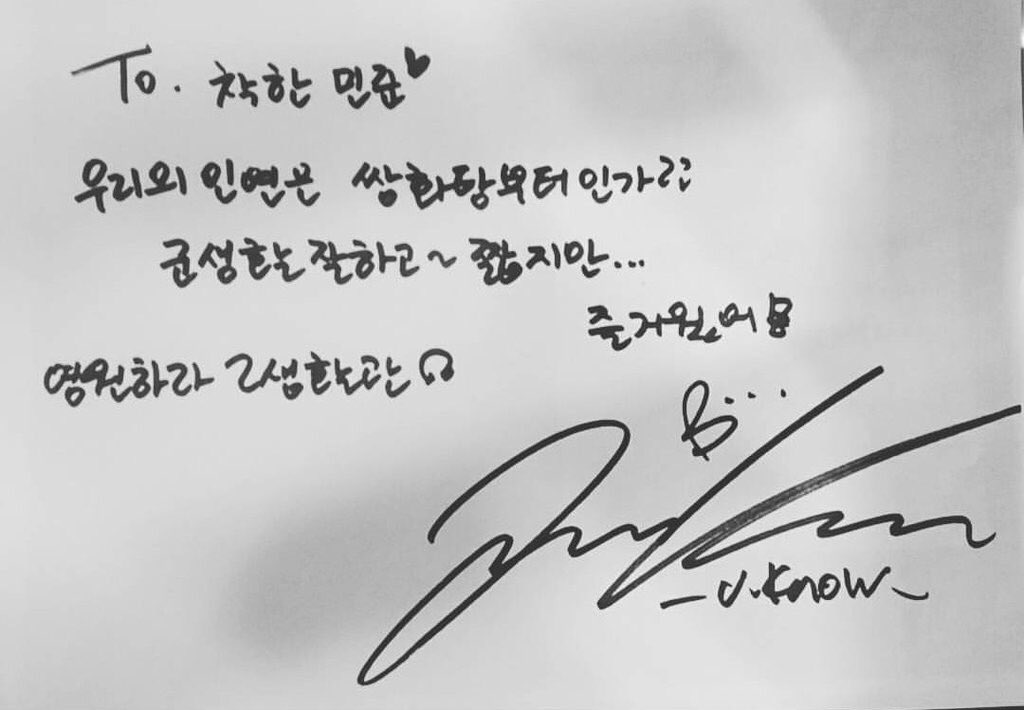 To. 착한 민준♥
우리의 인연은 쌍화탕부터 인가??
군생활 잘하고~ 짧지만...
즐거웠어
영원하라 2생활관
B...
-U.Know-